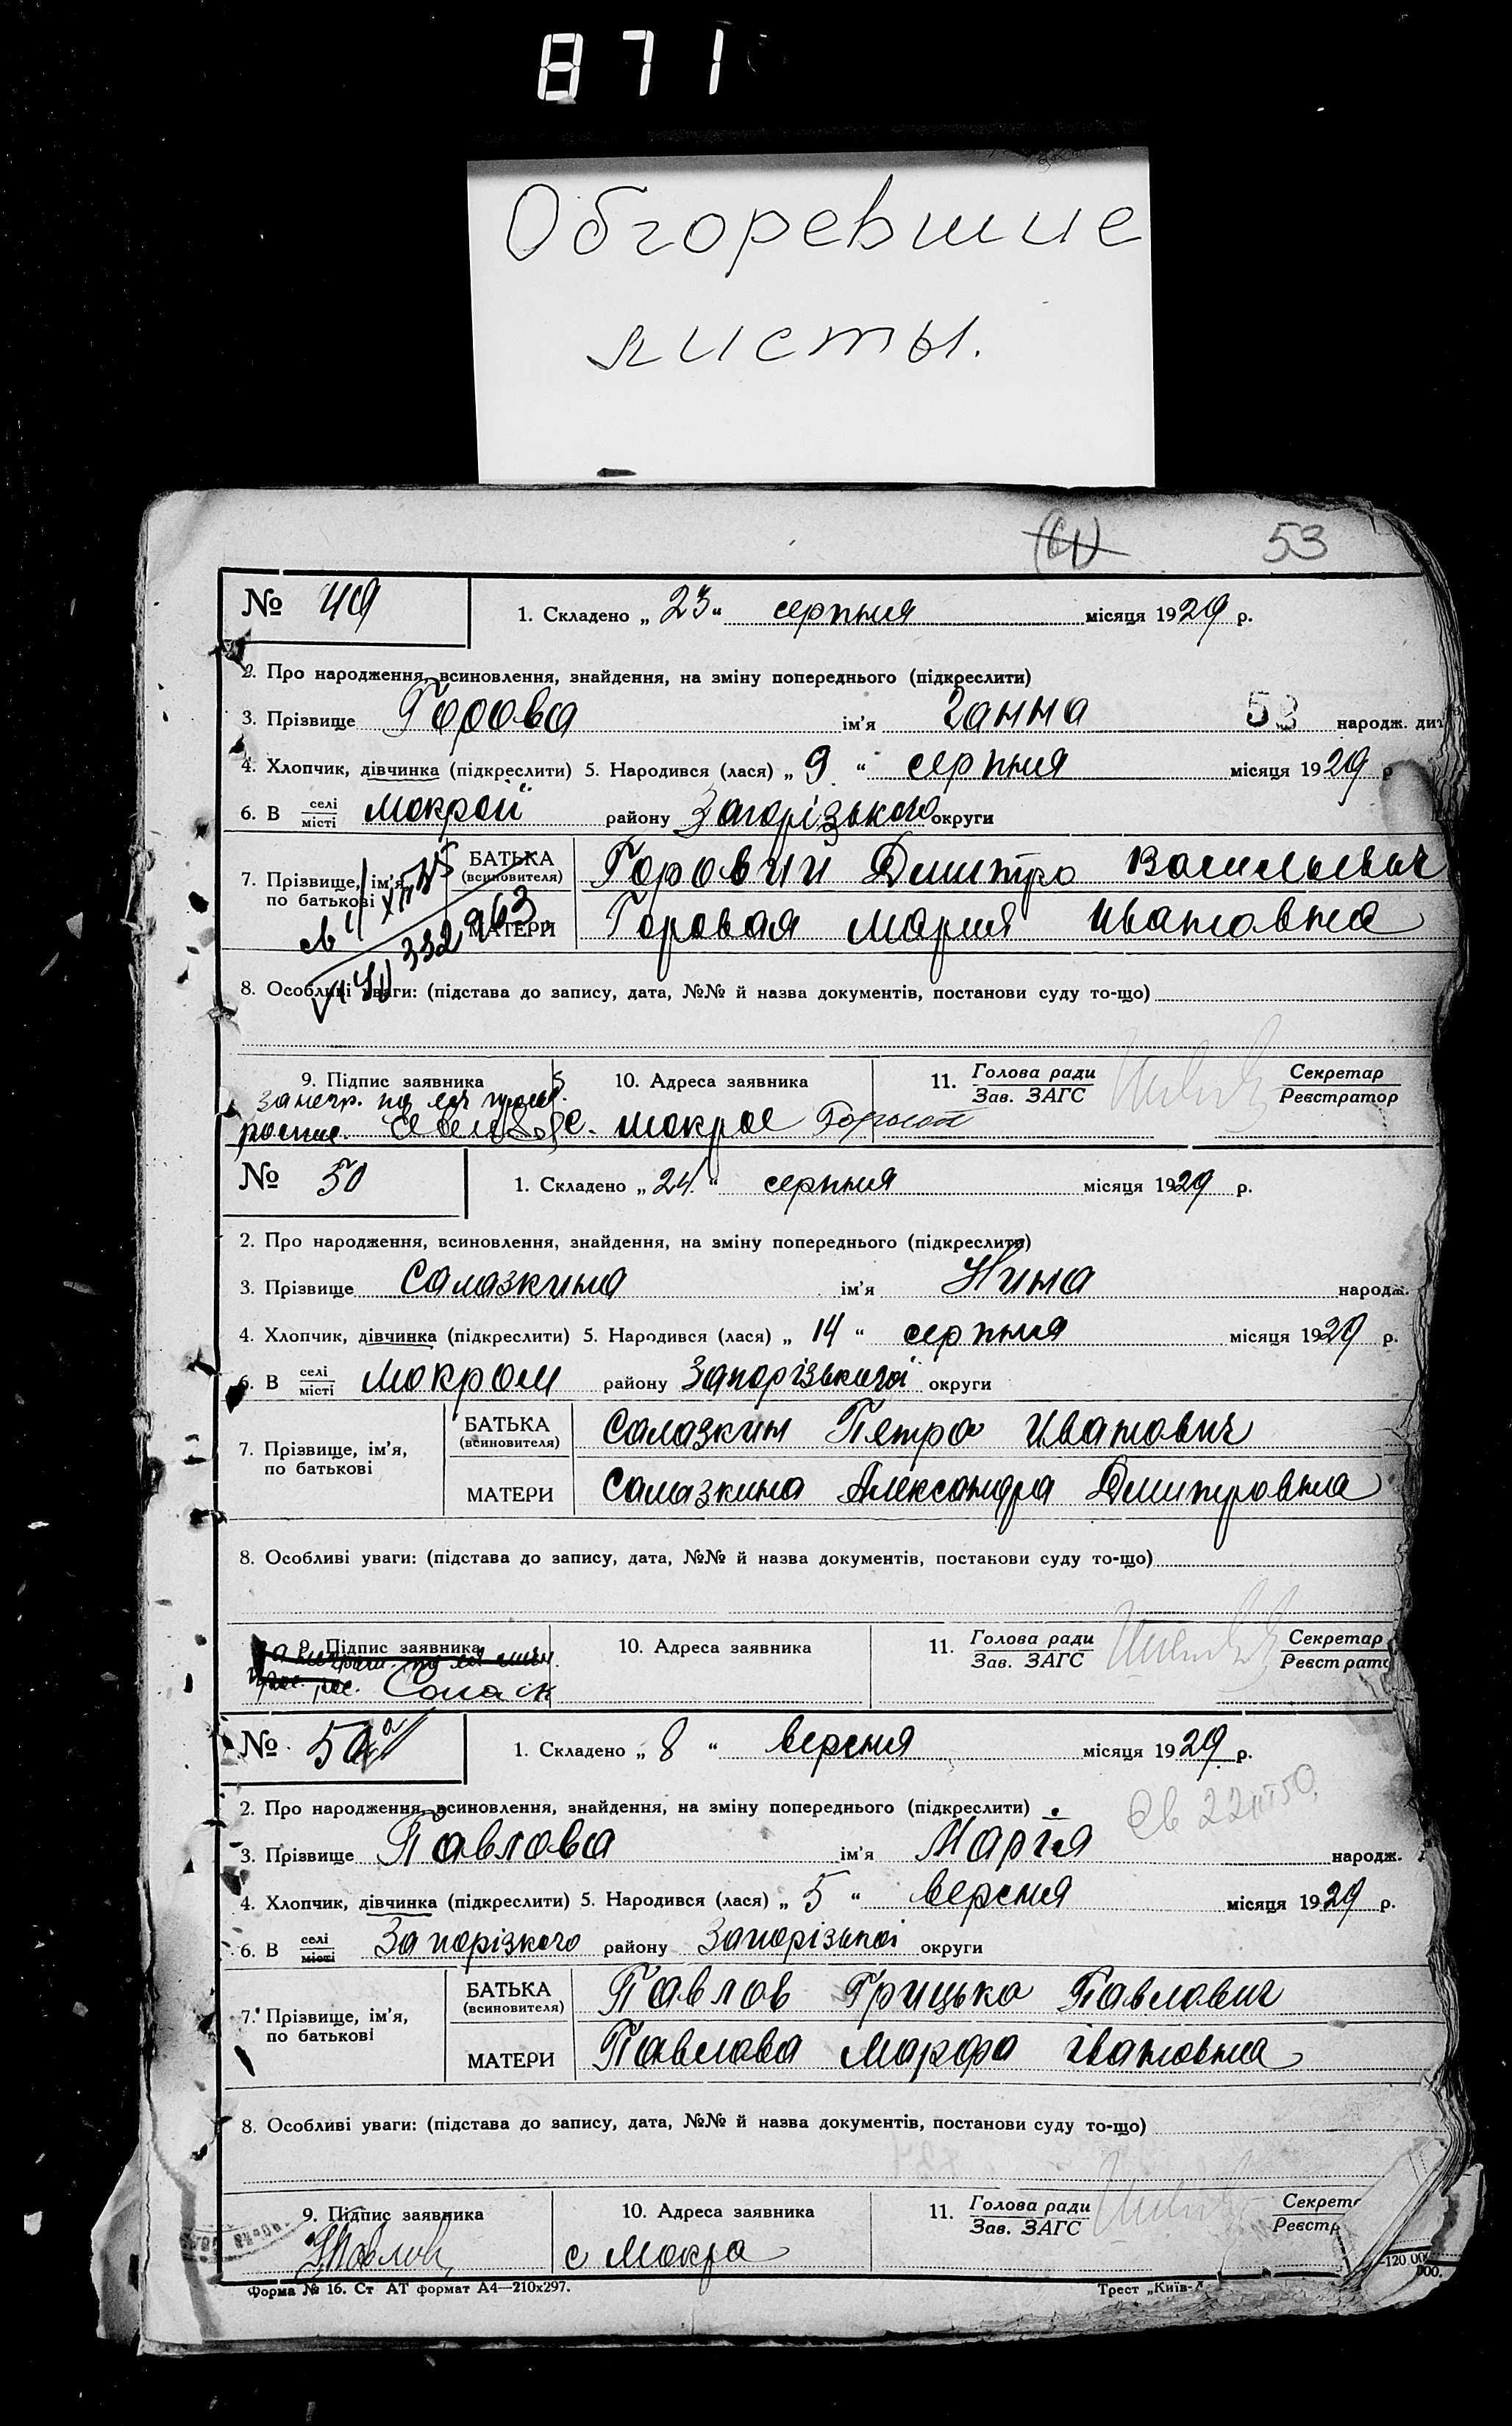 871
Обгоревшие
листы.
53
№ 49
1. Складено „ 23 “ серпня місяця 1929 р.
2. Про народження, всиновлення, знайдення, на зміну попереднього (підкреслити)
3. Прізвище Горова ім’я Ганна 53 народж. дит
4. Хлопчик, дівчинка (підкреслити) 5. Народився (лася) „ 9 “ серпня місяця 1929 р
6. В селі місті Мокрой району Запорізького округи
7. Прізвище, ім’я, по батькові
БАТЬКА (всиновителя) Горовий Дмитро Васильевич
МАТЕРИ Горовая Мария Ивановна
332 963
8. Особливі уваги: (підстава до запису, дата, №№ й назва документів, постанови суду то-що)
9. Підпис заявника 10. Адреса заявника 11. Голова ради Зав. ЗАГС Секретар Реєстратор
с. Мокрое
№ 50
1. Складено „ 24 “ серпня місяця 1929 р.
2. Про народження, всиновлення, знайдення, на зміну попереднього (підкреслити)
3. Прізвище Салазкина ім’я Нина народж.
4. Хлопчик, дівчинка (підкреслити) 5. Народився (лася) „ 14 “ серпня місяця 1929 р.
6. В селі місті Мокром району Запорізької округи
7. Прізвище, ім’я, по батькові
БАТЬКА (всиновителя) Салазкин Петро Иванович
МАТЕРИ Салазкина Александра Дмитровна
8. Особливі уваги: (підстава до запису, дата, №№ й назва документів, постанови суду то-що)
9. Підпис заявника 10. Адреса заявника 11. Голова ради Зав. ЗАГС Секретар Реєстрато
№
1. Складено „ 8 “ версня місяця 1929 р.
2. Про народження, всиновлення, знайдення, на зміну попереднього (підкреслити)
3. Прізвище Павлова ім’я Марія народж.
4. Хлопчик, дівчинка (підкреслити) 5. Народився (лася) „ 5 “ версня місяця 1929 р.
6. В селі місті Запорізкого району Запорізької округи
7. Прізвище, ім’я, по батькові
БАТЬКА (всиновителя) Павлов Грицько Павлович
МАТЕРИ Павлова Марфа Івановна
8. Особливі уваги: (підстава до запису, дата, №№ й назва документів, постанови суду то-що)
9. Підпис заявника 10. Адреса заявника 11. Голова ради Зав. ЗАГС Секрета Реєстр
Павлов с Мокра
Форма № 16. Ст АТ формат А4—210х297. Трест „Київ- 120.00